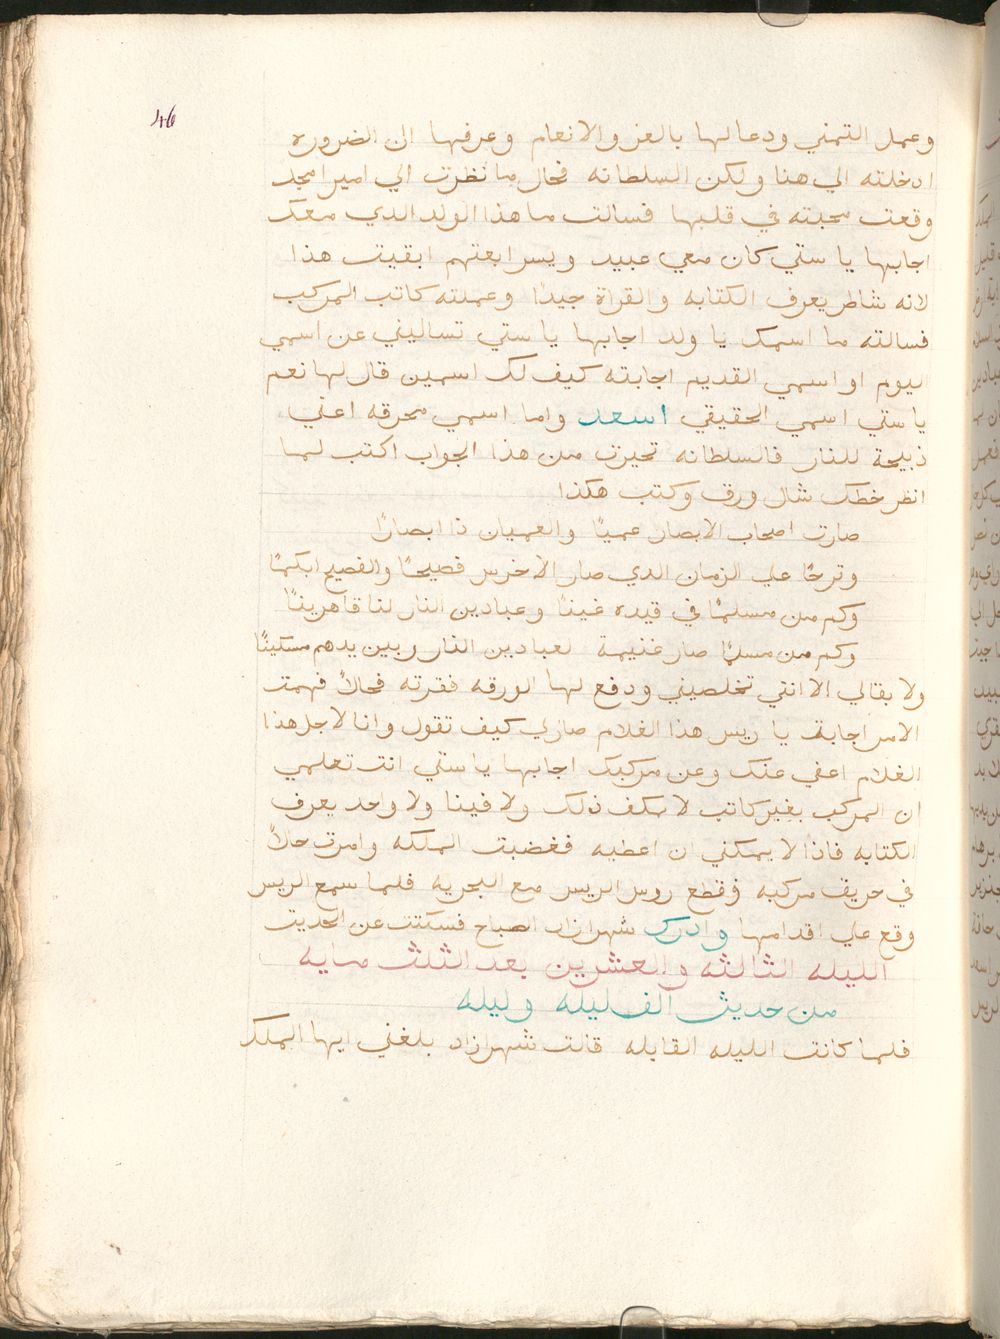 46
وعمل التمني ودعا لها بالعز والانعام وعرفها ان الضروره
ادخلته الي هنا ولكن السلطانه فحال ما نظرت الي امير امجد
وقعت محبته في قلبها فسالت ما هذا الولد الدي معك
اجابها يا ستي كان معي عبيد ويسر ابعتهم ابقيت هذا
لانه شاطر يعرف الكتابه والقراة جيدًا وعملته كاتب المركب
فسالته ما اسمك يا ولد اجابها يا ستي تساليني عن اسمي
اليوم او اسمي القديم اجابته كيف لك اسمين قال لها نعم
يا ستي اسمي الحقيقي اسعد واما اسمي محرقه اعني
ذبيحة للنار فالسلطانه تحيرت من هذا الجواب اكتب لما
انظر خطك شال ورق وكتب هكذا
صارت اصحاب الابصار عميًا والعميان ذا ابصارًا
وترحًا علي الزمان الدي صار الاخرس فصيحًا والفصيح ابكمًا
وكم من مسلمًا في قيده غينًا وعبادين النار لنا قاهرينًا
وكم من مسلمًا صار غنيمة لعبادين النار وبين يدهم مسكينًا
ولا بقالي الا انتي تخلصيني ودفع لها الورقه فقرته فحالاً فهمت
الامر اجابة يا ريس هذا الغلام صار لي كيف تقول وانا لاجل هذا
الغلام اعفي عنك وعن مركبك اجابها يا ستي انت تعلمي
ان المركب بغير كاتب لا ذلك ولا فينا ولا واحد يعرف
الكتابه فاذا لا يمكني ان اعطيه فغضبت الملكه وامرت حالاً
في حريف مركبه وقطع روس الريس مع البحريه فلما سمع الريس
وقع علي اقدامها وادرك شهرازاد الصباح فسكتت عن الحديت
الليله الثالثه والعشرين بعد الثلث مايه
من حديث الف ليله وليله
فلما كانت الليله القابله قالت شهرازاد بلغني ايها الملك